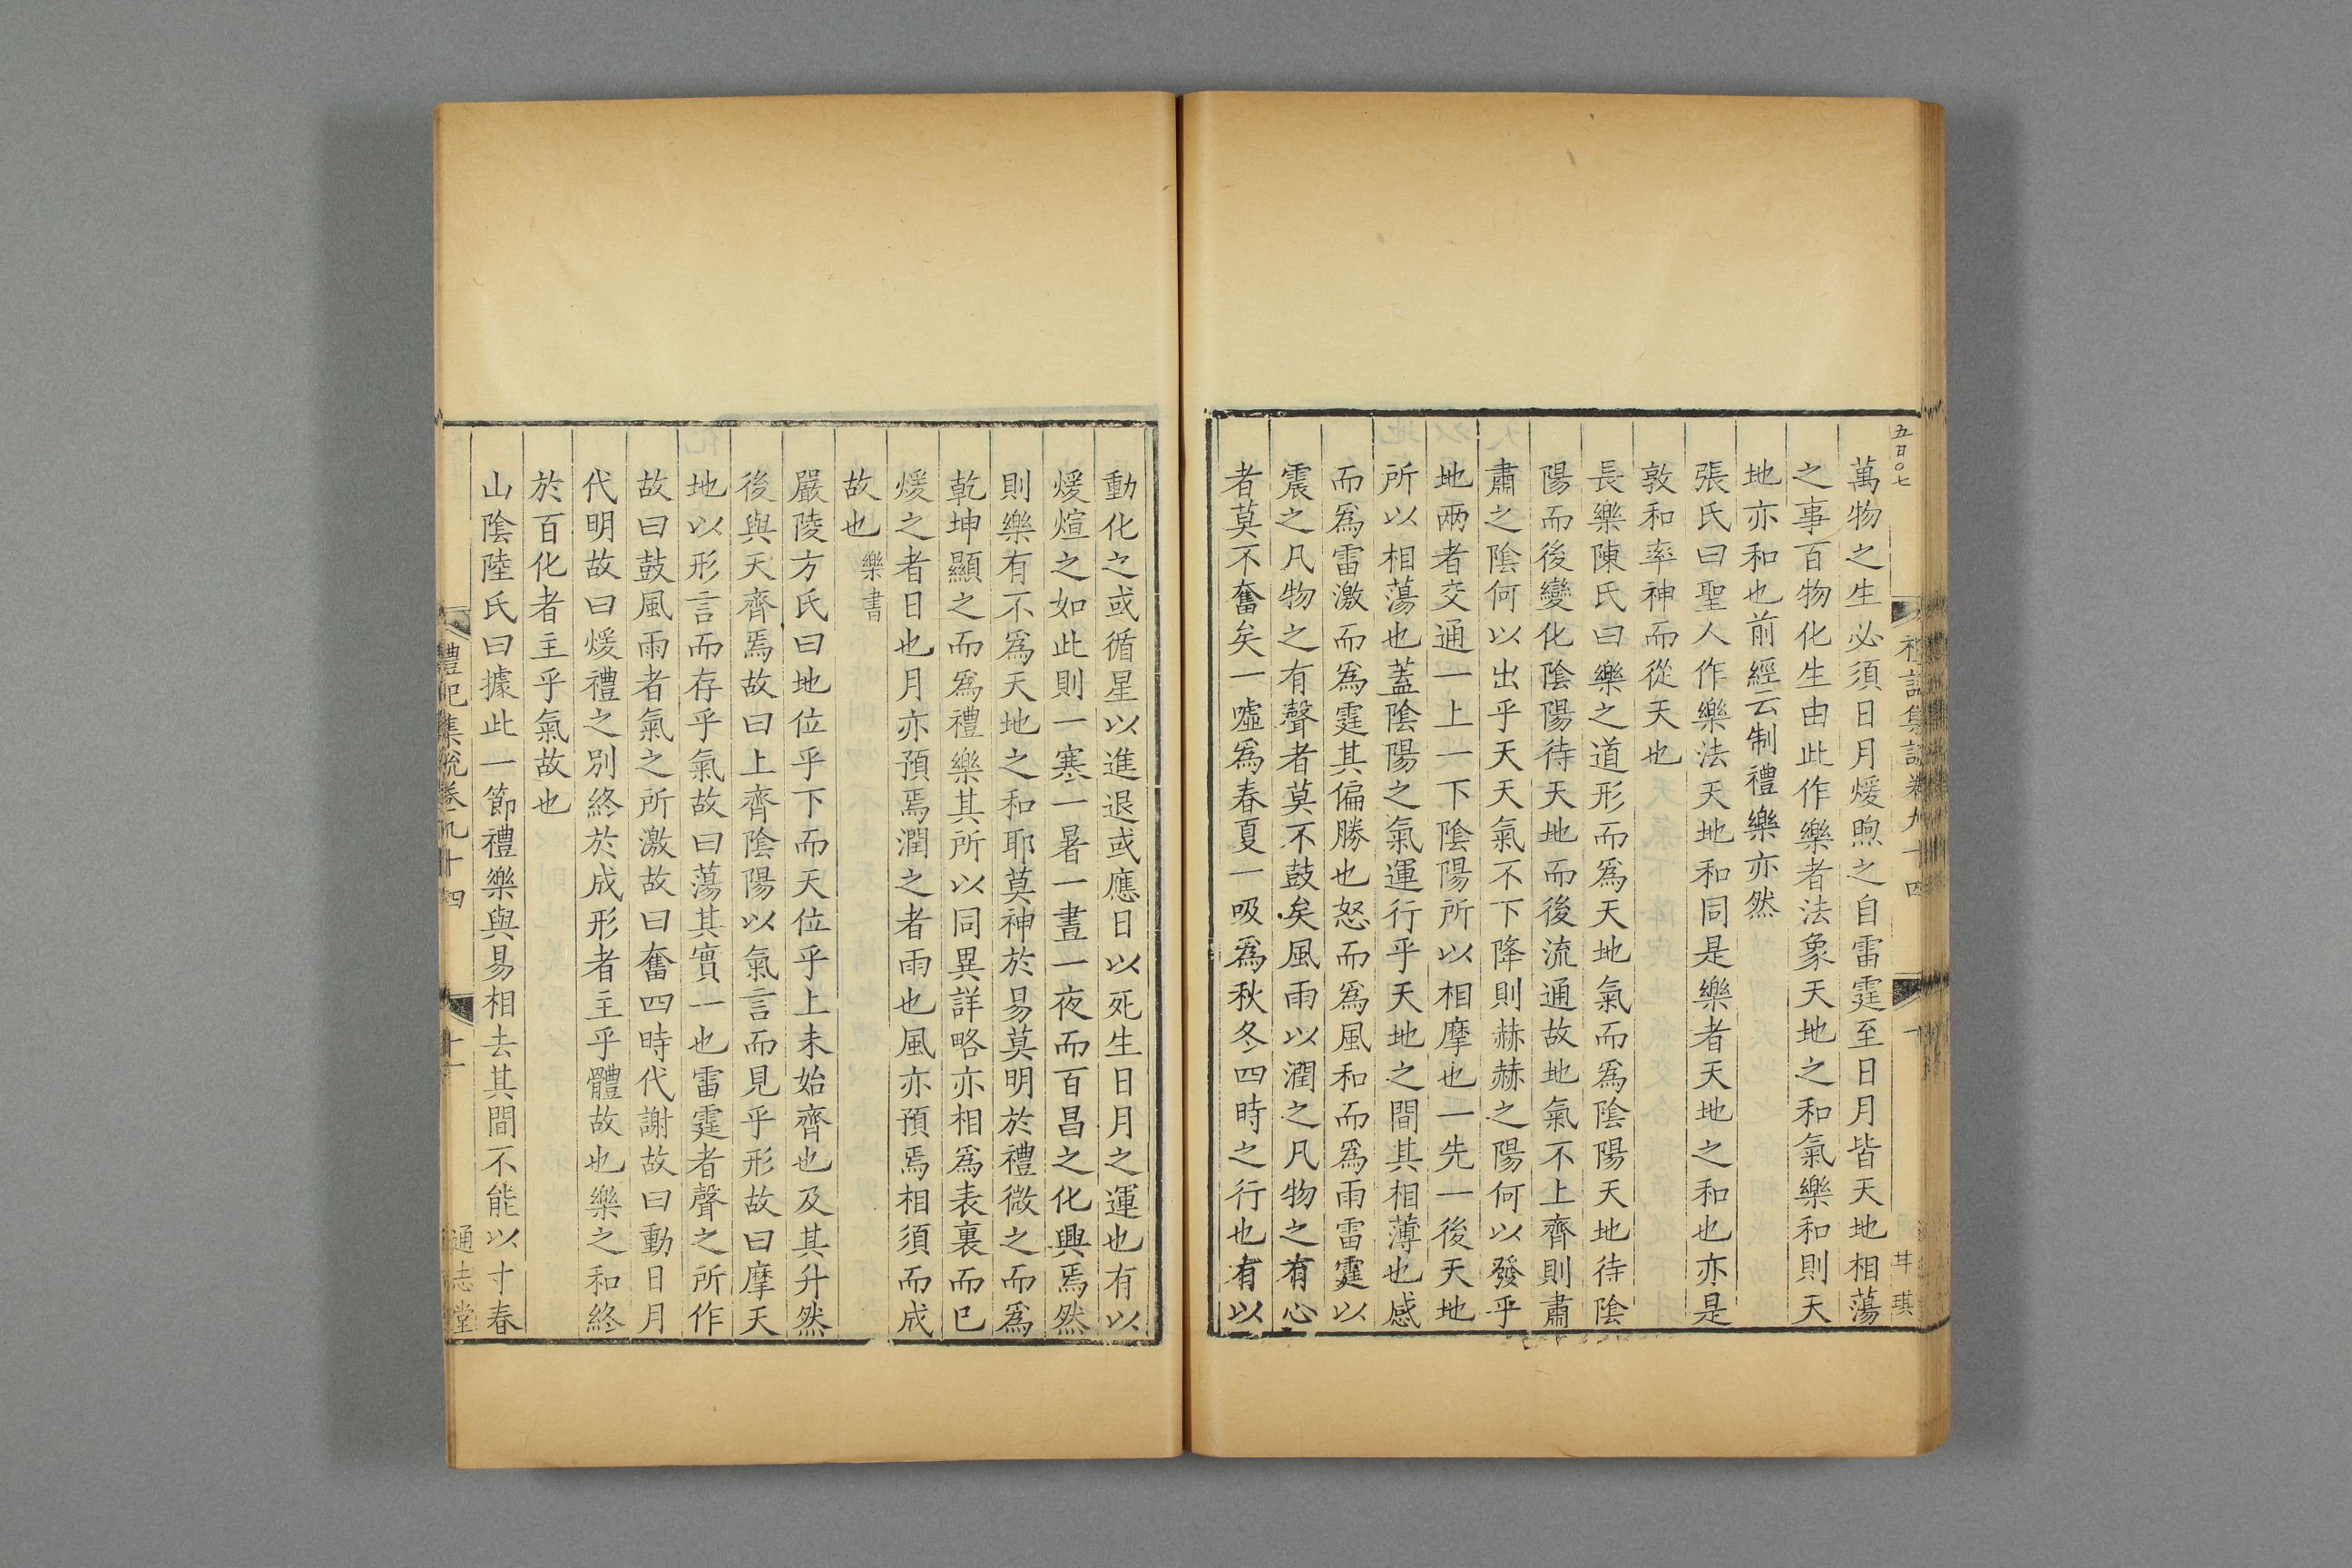 五百〇七
禮記集說卷九十四
十
萬物之生必須日月煖煦之自雷霆至日月皆天地相蕩
之事百物化生由此作樂者法象天地之和氣樂和則天
地亦和也前經云制禮樂亦然
張氏曰聖人作樂法天地和同是樂者天地之和也亦是
敦和率神而從天也
長樂陳氏曰樂之道形而爲天地氣而爲陰陽天地待陰
陽而後變化陰陽待天地而後流通故地氣不上齊則肅
肅之陰何以出乎天天氣不下降則赫赫之陽何以發乎
地兩者交通一上一下陰陽所以相摩也一先一後天地
所以相蕩也蓋陰陽之氣運行乎天地之間其相薄也感
而爲雷激而爲霆其偏勝也怒而爲風和而爲雨雷霆以
震之凡物之有聲者莫不鼓矣風雨以潤之凡物之有心
者莫不奮矣一噓爲春夏一吸爲秋冬四時之行也有以
動化之或循星以進退或應日以死生日月之運也有以
煖煊之如此則一寒一暑一晝一夜而百昌之化興焉然
則樂有不爲天地之和耶莫神於易莫明於禮微之而爲
乾坤顯之而爲禮樂其所以同異詳略亦相爲表裏而已
煖之者日也月亦預焉潤之者雨也風亦預焉相須而成
故也 樂書
嚴陵方氏曰地位乎下而天位乎上未始齊也及其升然
後與天齊焉故曰上齊陰陽以氣言而見乎形故曰摩天
地以形言而存乎氣故曰蕩其實一也雷霆者聲之所作
故曰鼓風雨者氣之所激故曰奮四時代謝故曰動日月
代明故曰煖禮之別終於成形者主乎體故也樂之和終
於百化者主乎氣故也
山陰陸氏曰據此一節禮樂與易相去其間不能以寸春
禮記集說卷九十四
十一
通志堂